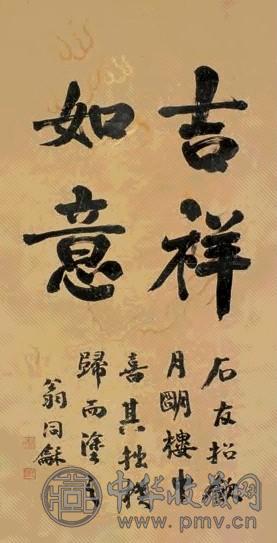 吉祥
如意
石友
月明樓中
喜其拙
歸而塗
翁同龢
中华收藏网
www.pmv.cn